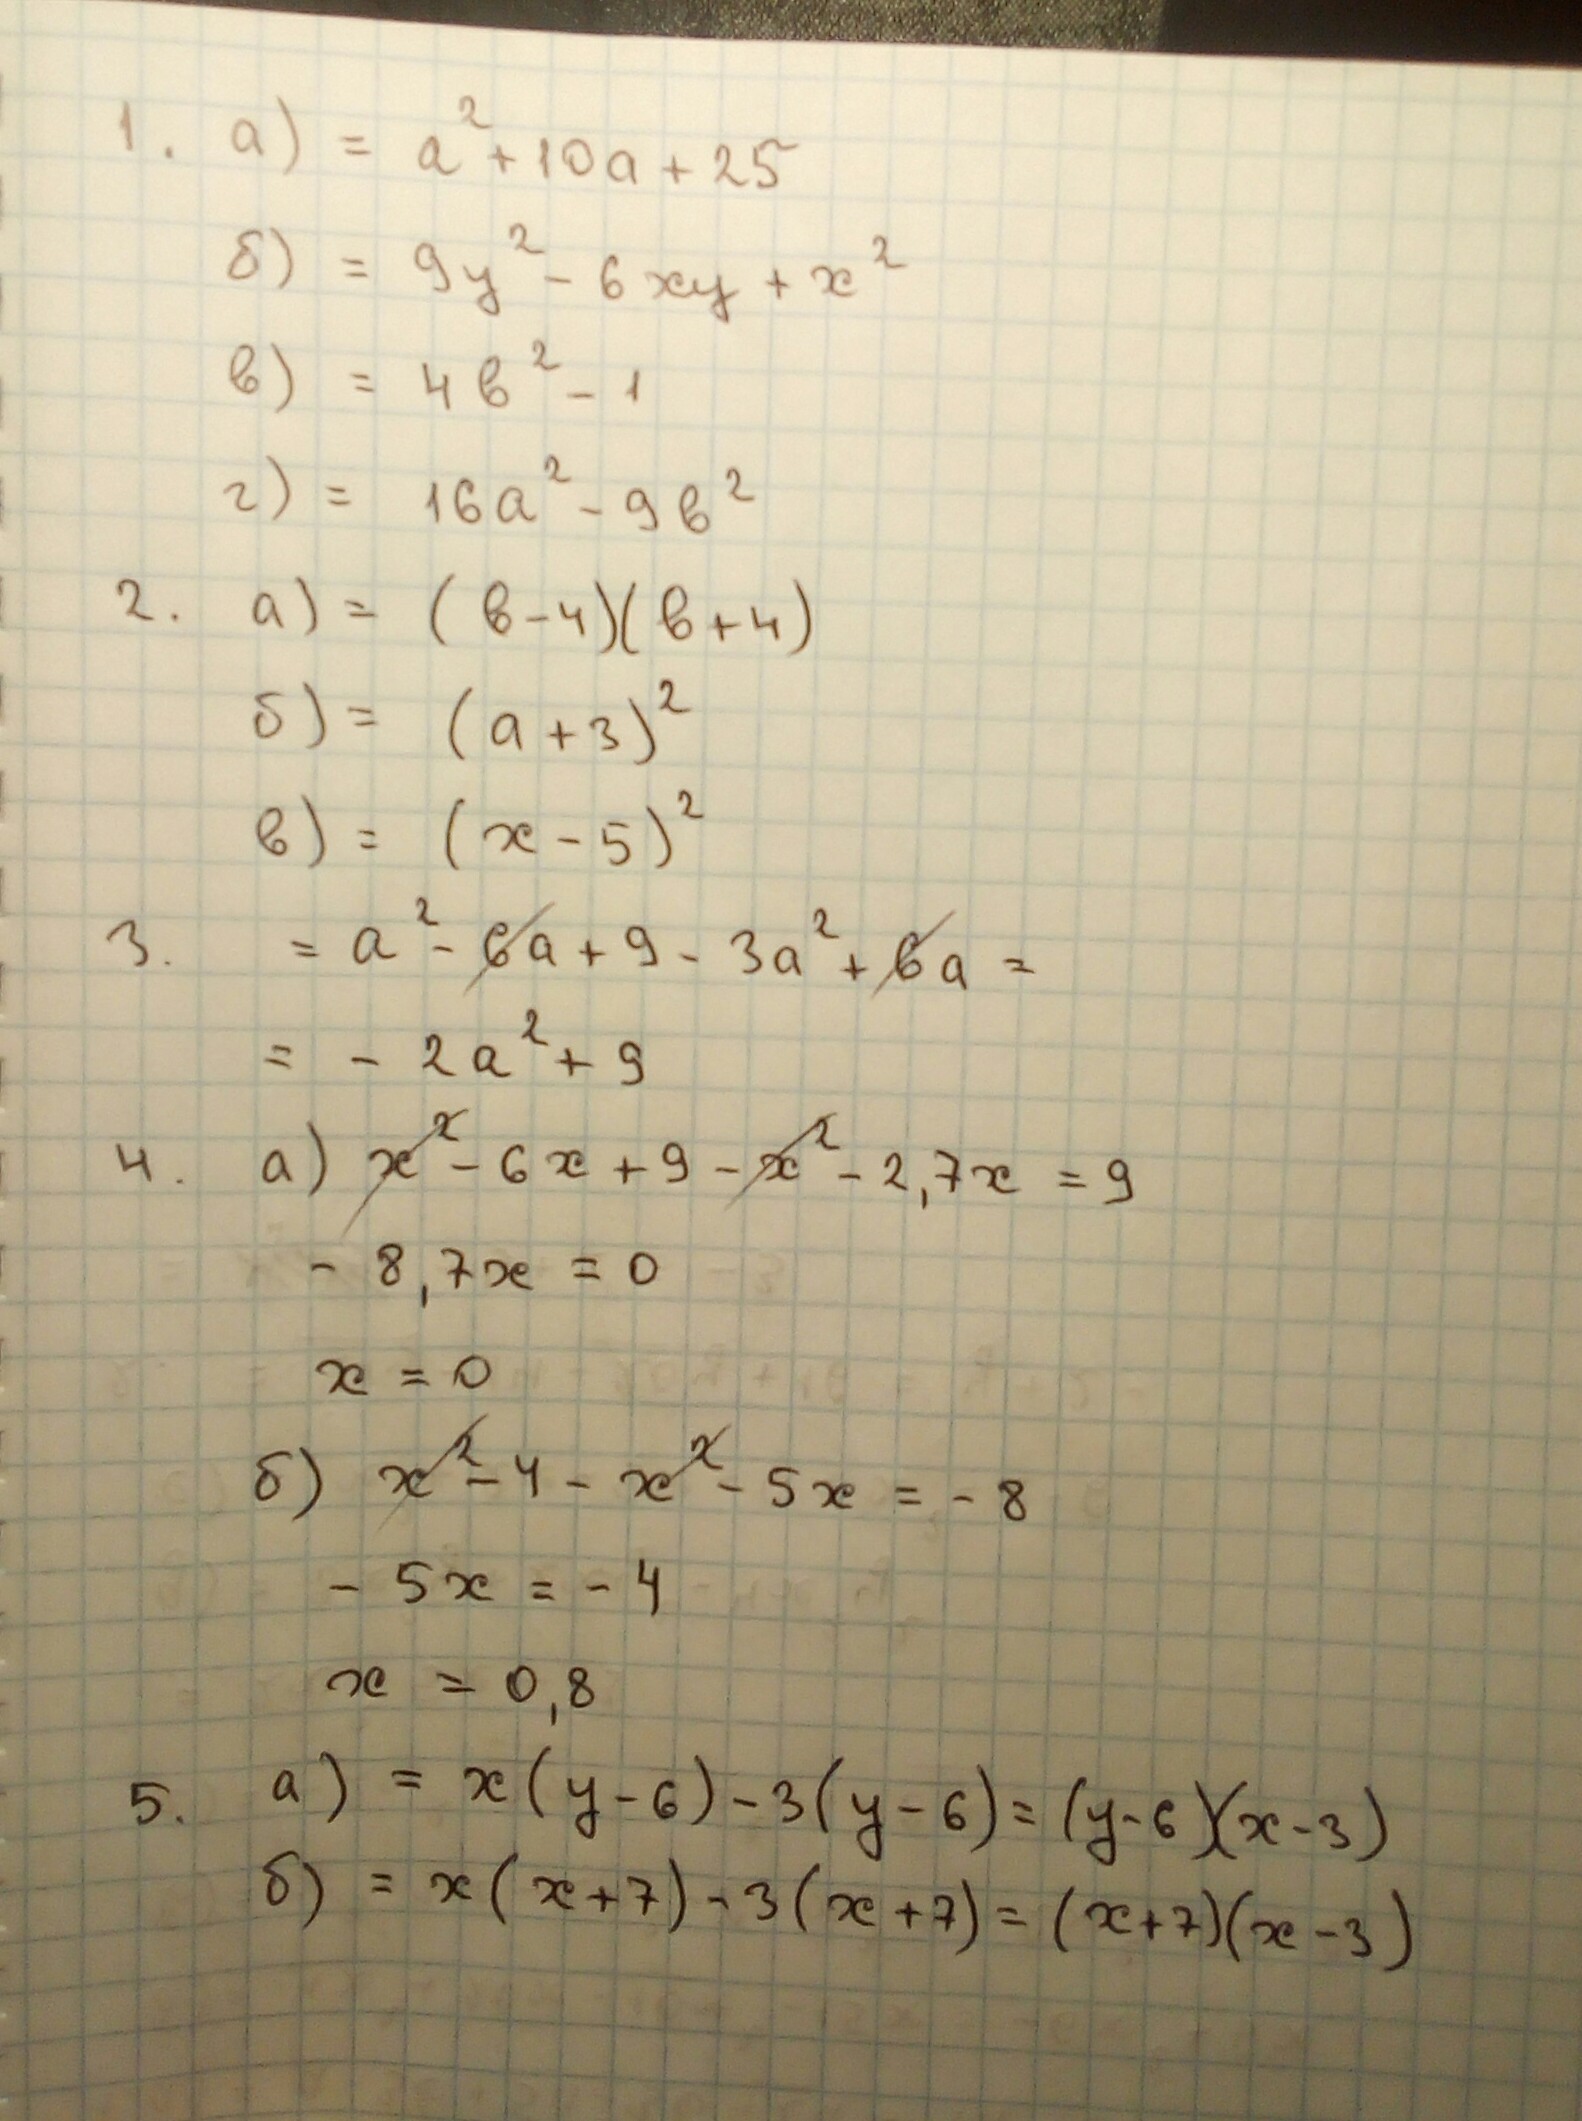 1. а) = a² + 10a + 25
б) = 9y² - 6xy + x²
в) = 4b² - 1
г) = 16a² - 9b²
2. а) = (b-4)(b+4)
б) = (a+3)²
в) = (x-5)²
3. = a² - 6a + 9 - 3a² + 6a =
= - 2a² + 9
4. а) x² - 6x + 9 - x² - 2,7x = 9
- 8,7x = 0
x = 0
б) x² - 4 - x² - 5x = - 8
- 5x = - 4
x = 0,8
5. а) = x(y-6) - 3(y-6) = (y-6)(x-3)
б) = x(x+7) - 3(x+7) = (x+7)(x-3)